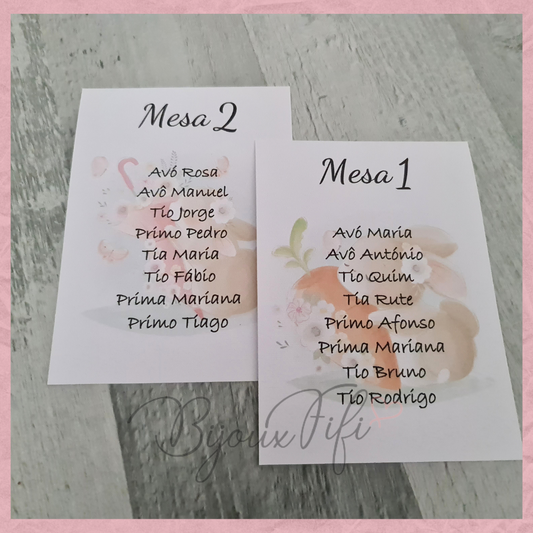 Mesa 2
Avó Rosa
Avô Manuel
Tio Jorge
Primo Pedro
Tia Maria
Tio Fábio
Prima Mariana
Primo Tiago
Mesa 1
Avó Maria
Avô António
Tio Quim
Tia Rute
Primo Afonso
Prima Mariana
Tio Bruno
Tio Rodrigo
BijouxFifi